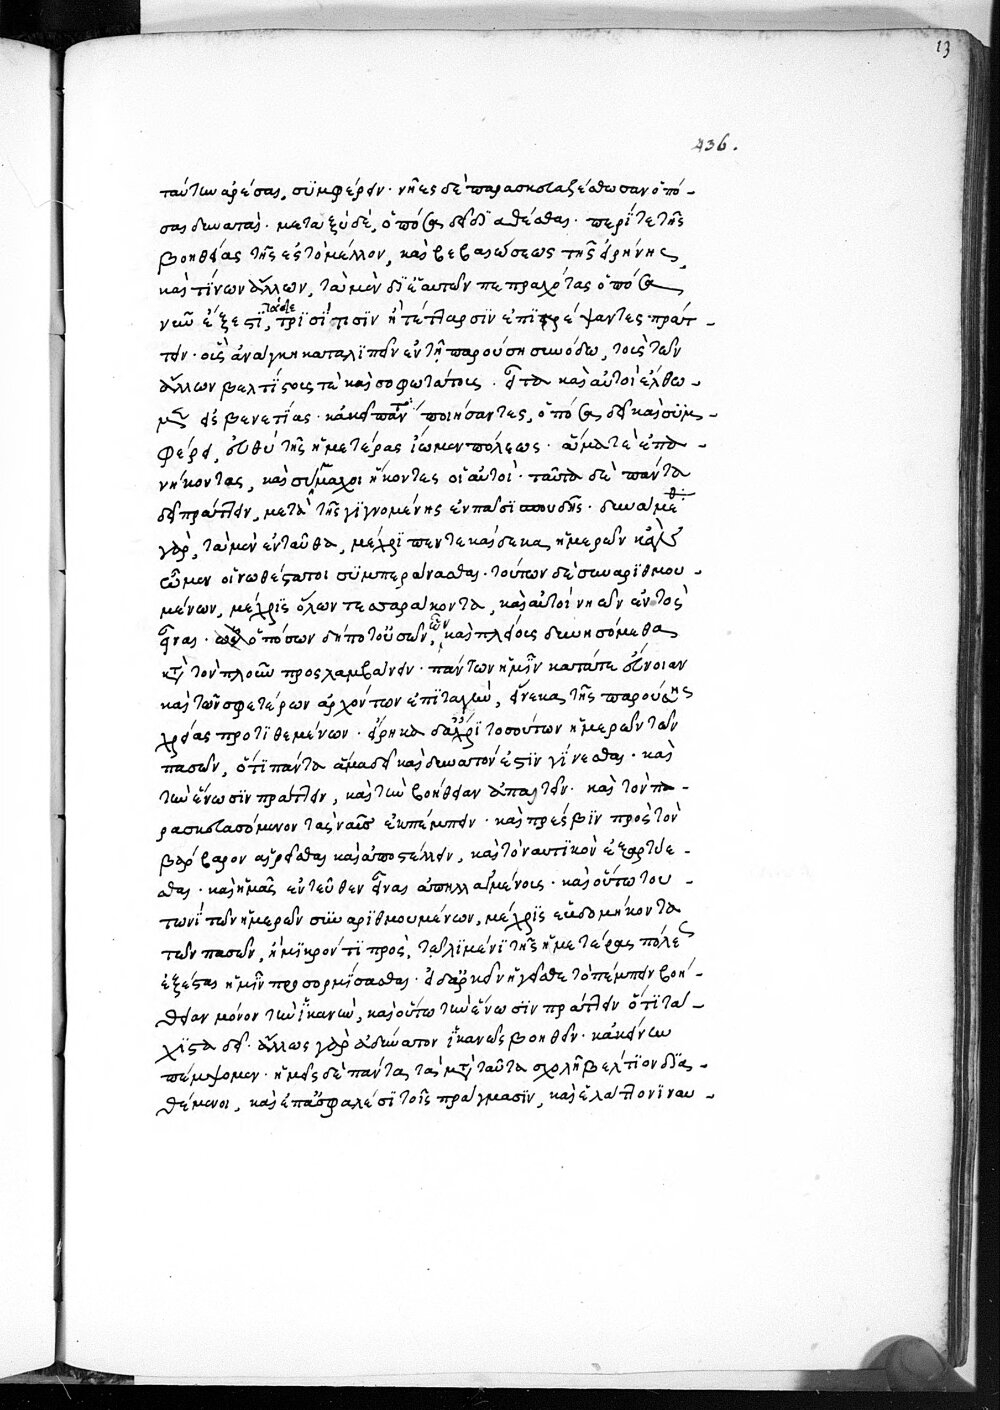 13
436.
ταύτην ἀρέσαι, συμφέρειν· νῆες δὲ παρασκευαζέσθωσαν ὁπό-
σας δυνατὸν· μεταξὺ δέ, ὁπόσαι δεῖ διαθέσθαι· περί τε τῆς
βοηθείας τῆς ἐς τὸ μέλλον, καὶ βεβαιώσεως τῆς εἰρήνης,
καὶ τίνων ἄλλων, τὰ μὲν δι' ἑαυτῶν πεπραχότας ὁπόσα
νῦν ἔξεστι, τὰ δὲ τρισί τισιν ἢ τέτταρσιν ἐπιτρέψαντες πράτ-
τειν· οὓς ἀνάγκη καταλιπεῖν ἐν τῇ παρούσῃ συνόδῳ, τοῖς τῶν
ἄλλων βελτίστοις τὲ καὶ σοφωτάτοις. εἶτα καὶ αὐτοὶ ἔλθω-
μεν ἐς βενετίας· κἀκεῖ πᾶν τὸ ποιήσαντες, ὁπόσα δεῖ καὶ συμ-
φέρει, εὐθὺ τῆς ἡμετέρας ἴωμεν πόλεως· ἅμα τὲ ἐπα-
νήκοντας, καὶ σύμμαχοι ἥκοντες οἱ αὐτοὶ· ταῦτα δὲ πάντα
δεῖ πράττειν, μετὰ τῆς γιγνομένης ἐν πᾶσι σπουδῆς· δυνάμεθα
γὰρ, τὰ μὲν ἐνταῦθα, μέχρι πεντεκαίδεκα ἡμερῶν καλῶς
ὦμεν οἱ νωθέστατοι συμπεράνασθαι· τούτων δὲ συναριθμου-
μένων, μέχρις ὅλων τεσσαράκοντα, καὶ αὐτοὶ νηῶν ἐντὸς
εἶναι· ὁπόσων δήποτ' οὖν, καὶ πλείοις δυνησόμεθα
μετὰ τὸν πλοῦν προσλαμβάνειν· πάντων ἡμῖν κατά τε εὔνοιαν
καὶ τῶν σφετέρων ἀρχόντων ἐπιταγὴν, εἵνεκα τῆς παρούσης
χρείας προτιθεμένων· εἴρηκα δ' ἄχρι τοσούτων ἡμερῶν τῶν
πασῶν, ὅτι πάντα ἅμα δεῖ καὶ δυνατόν ἐστιν γίνεσθαι· καὶ
τὴν ἕνωσιν πράττειν, καὶ τὴν βοήθειαν ἀπαιτεῖν· καὶ τὸν πα-
ρασκευασόμενον τὰς ναῦς ἐκπέμπειν· καὶ πρέσβιν πρὸς τὸν
βάρβαρον αἱρεῖσθαι καὶ ἀποστέλλειν, καὶ τὸ ναυτικὸν ἐξαρτύε-
σθαι· καὶ ἡμᾶς ἐντεῦθεν εἶναι ἀπηλλαγμένοις· καὶ οὕτω του-
τωνὶ τῶν ἡμερῶν συναριθμουμένων, μέχρις ἑβδομήκοντα
τῶν πασῶν, ἢ μικρόν τι πρὸς, τῷ λιμένι τῆς ἡμετέρας πόλεως
ἐξέσται ἡμῖν προσορμίσασθαι· εἰ δ' ἀρκεῖν ἡγεῖσθε τὸ πέμπειν βοή-
θειαν μόνον τὴν ἱκανὴν, καὶ οὕτω τὴν ἕνωσιν πράττειν ὅτι τά-
χιστα δεῖ· ἄλλως γὰρ ἀδύνατον ἱκανῶς βοηθεῖν· κἀκείνην
πέμψομεν· ἡμεῖς δὲ πάντα τὰ μετὰ ταῦτα σχολῇ βελτίον δια-
θέμενοι, καὶ ἐπ' ἀσφαλέσι τοῖς πράγμασιν, καὶ ἐλάττονι ναυ-